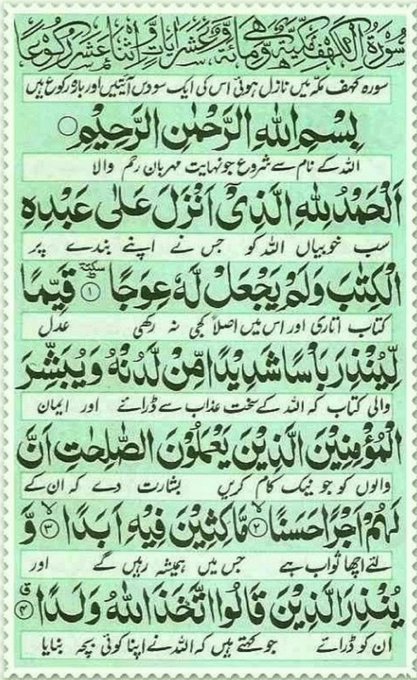 سُوْرَةُ الْكَهْفِ مَكِّيَّةٌ وَّهِيَ مِائَةٌ وَّعَشْرُ اٰيَاتٍ وَّاثْنَا عَشَرَ رُكُوْعًا
سورہ کہف مکہ میں نازل ہوئی اس کی ایک سو دس آیتیں اور بارہ رکوع ہیں
بِسْمِ اللهِ الرَّحْمٰنِ الرَّحِيْمِ
اللہ کے نام سے شروع جو نہایت مہربان رحم والا
اَلْحَمْدُ لِلّٰهِ الَّذِيْٓ اَنْزَلَ عَلٰى عَبْدِهِ
سب خوبیاں اللہ کو جس نے اپنے بندے پر
الْكِتٰبَ وَلَمْ يَجْعَلْ لَّهٗ عِوَجًا ۜ ﴿۱﴾ قَيِّمًا
کتاب اتاری اور اس میں اصلاً کجی نہ رکھی عدل
لِّيُنْذِرَ بَاْسًا شَدِيْدًا مِّنْ لَّدُنْهُ وَيُبَشِّرَ
والی کتاب کہ اللہ کے سخت عذاب سے ڈرائے اور ایمان
الْمُؤْمِنِيْنَ الَّذِيْنَ يَعْمَلُوْنَ الصّٰلِحٰتِ اَنَّ
والوں کو جو نیک کام کریں بشارت دے کہ ان کے
لَهُمْ اَجْرًا حَسَنًا ﴿۲﴾ مَّاكِثِيْنَ فِيْهِ اَبَدًا ﴿۳﴾ وَّ
لئے اچھا ثواب ہے جس میں ہمیشہ رہیں گے اور
يُنْذِرَ الَّذِيْنَ قَالُوا اتَّخَذَ اللهُ وَلَدًا ﴿۴﴾
ان کو ڈرائے جو کہتے ہیں کہ اللہ نے اپنا کوئی بچہ بنایا